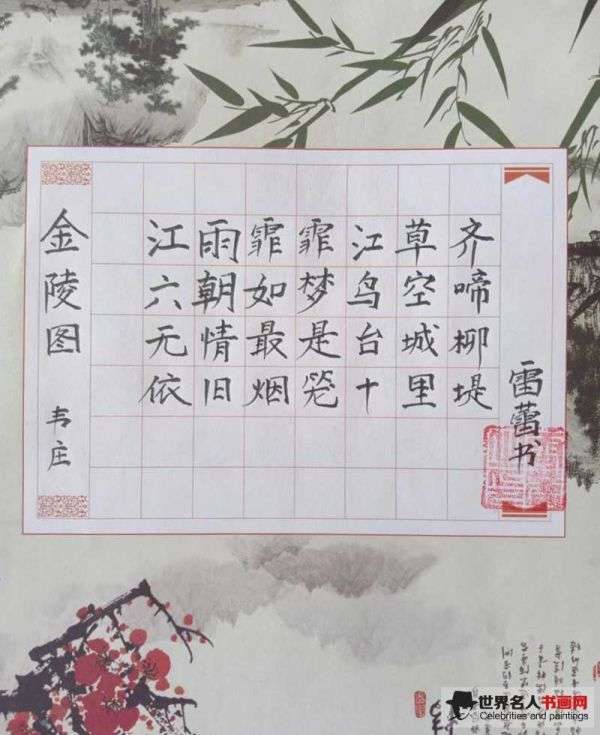 金陵图
韦庄
江雨霏霏江草齐
六朝如梦鸟空啼
无情最是台城柳
依旧烟笼十里堤
雷蕾书
世界名人书画网
Celebrities and paintings